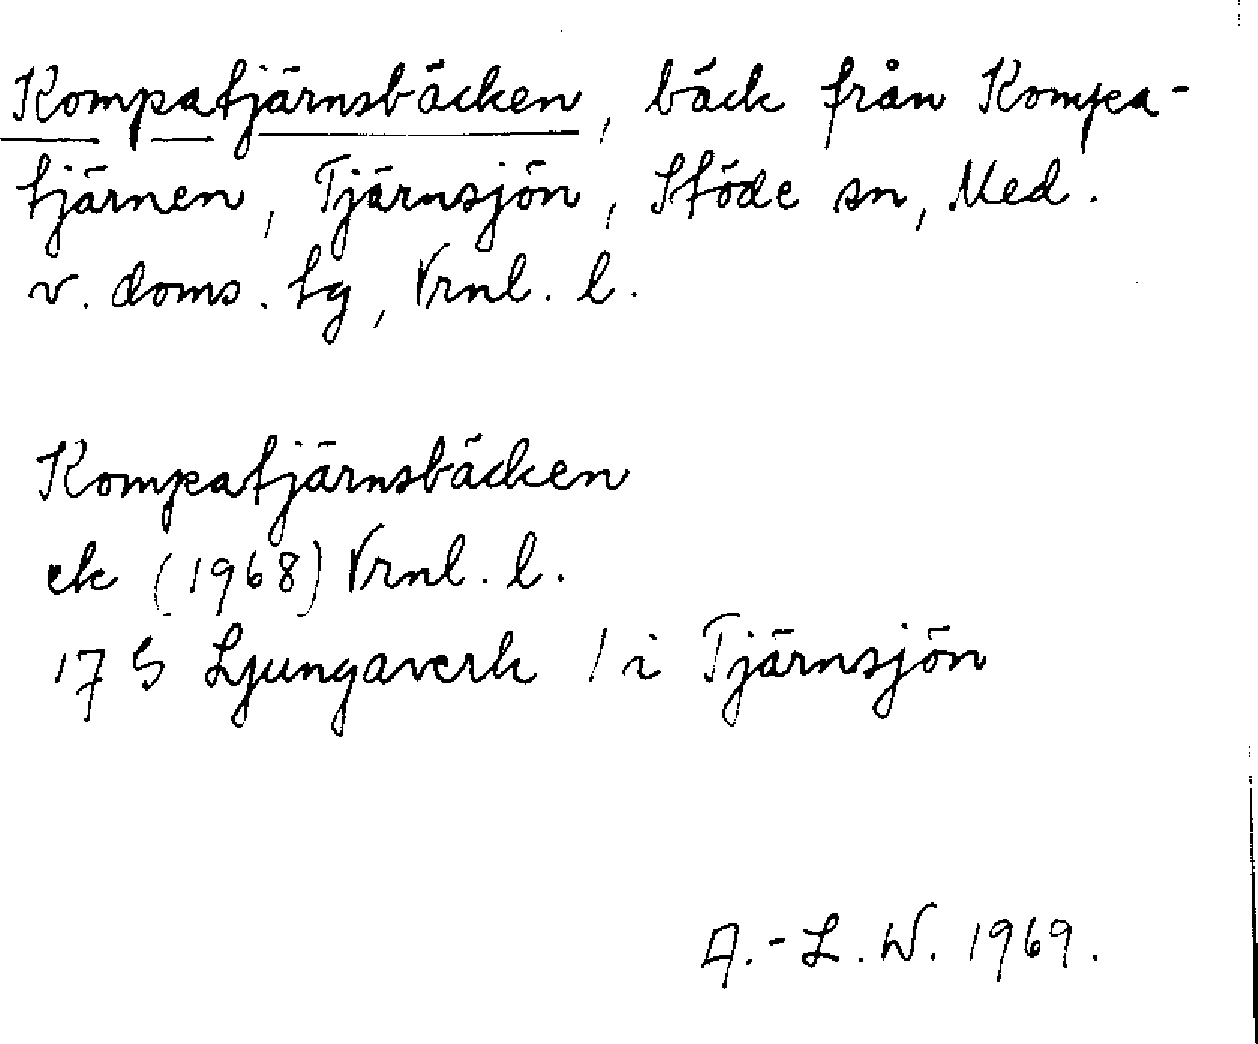 Kompatjärnsbäcken, bäck från Kompa-
tjärnen, Tjärnsjön, Stöde sn, Med.
v. doms. tg, Vrnl. l.
Kompatjärnsbäcken
ek (1968) Vrnl. l.
17 G Ljungaverk / i Tjärnsjön
A.-L. W. 1969.